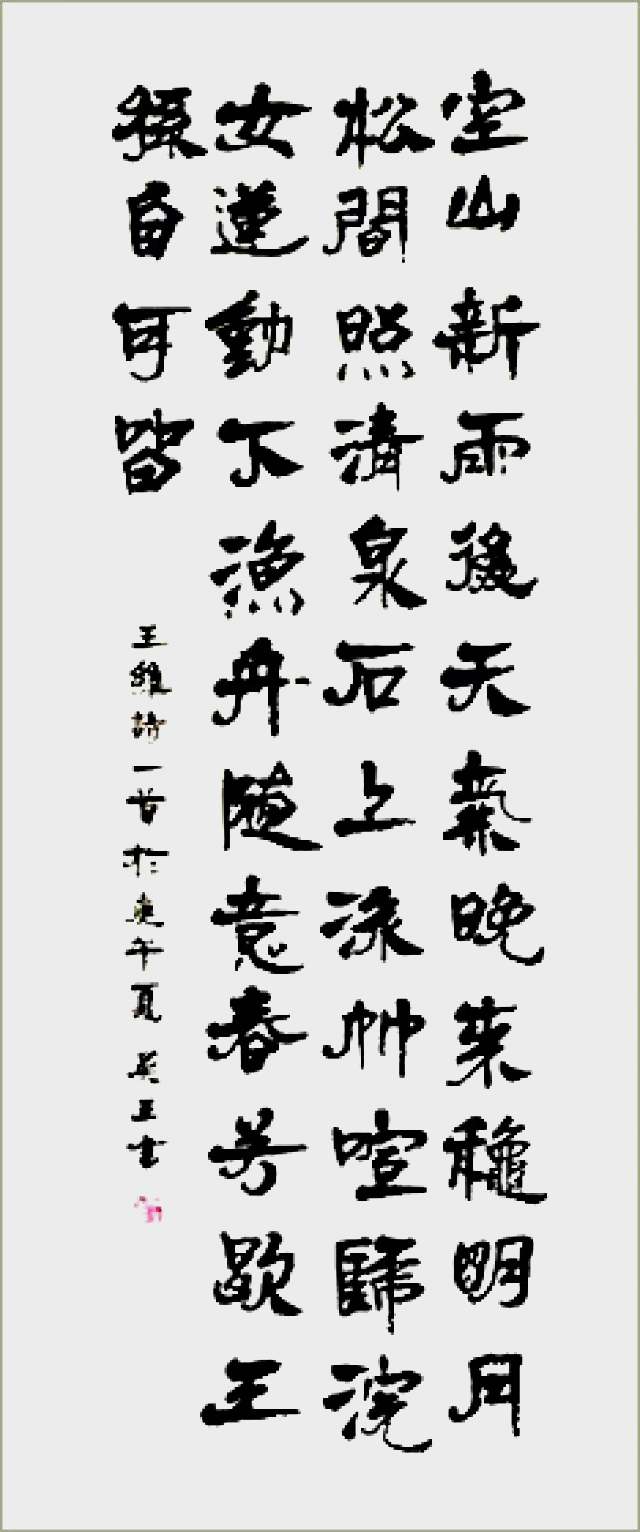 空山新雨後天氣晚来穐明月
松間照清泉石上流竹喧歸浣
女蓮動下漁舟随意春芳歇王
孫自可留
王維詩一首於庚午夏 書